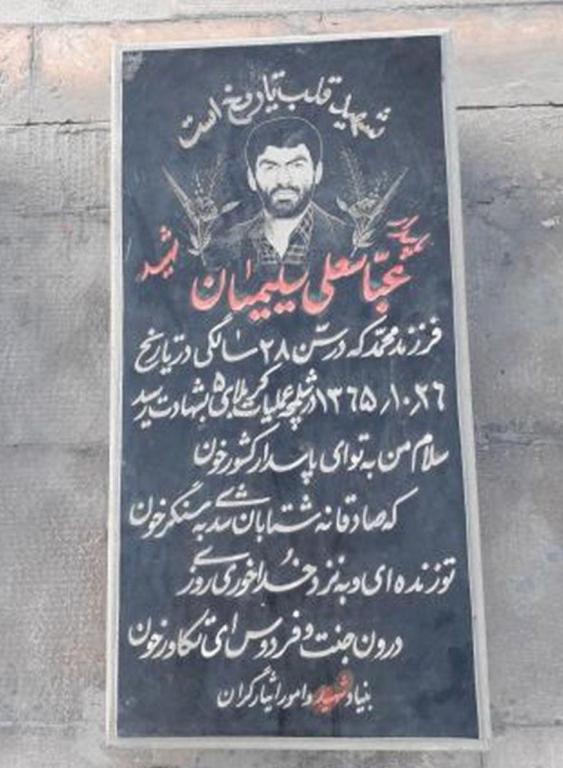 شهید قلب تاریخ است
شهید
تکاور
عباسعلی سلیمیان
فرزند محمد که در سن ۲۸ سالگی در تاریخ
۱۳۶۵/۱۰/۲۶ در شلمچه عملیات کربلای ۵ بشهادت رسید
سلام من به تو ای پاسدار کشور خون
که صادقانه شتابان شدی به سنگر خون
تو زنده ای و به نزد خدا خوری روزی
درون جنت و فردوس ای تکاور خون
بنیاد شهید و امور ایثارگران